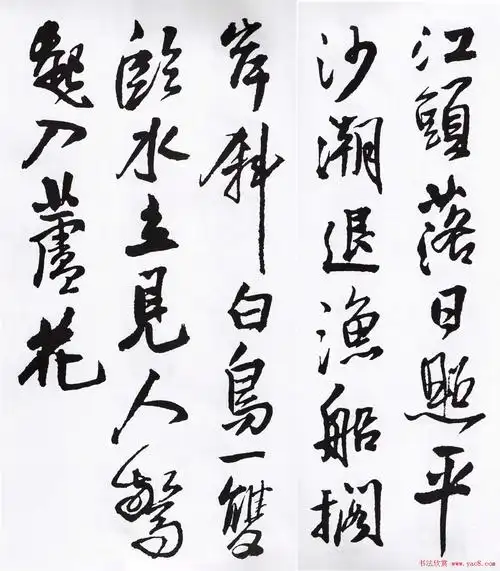 江頭落日照平
沙潮退漁船擱
岸斜白鳥一雙
臨水立見人驚
起入蘆花
书法欣赏 www.yac8.com